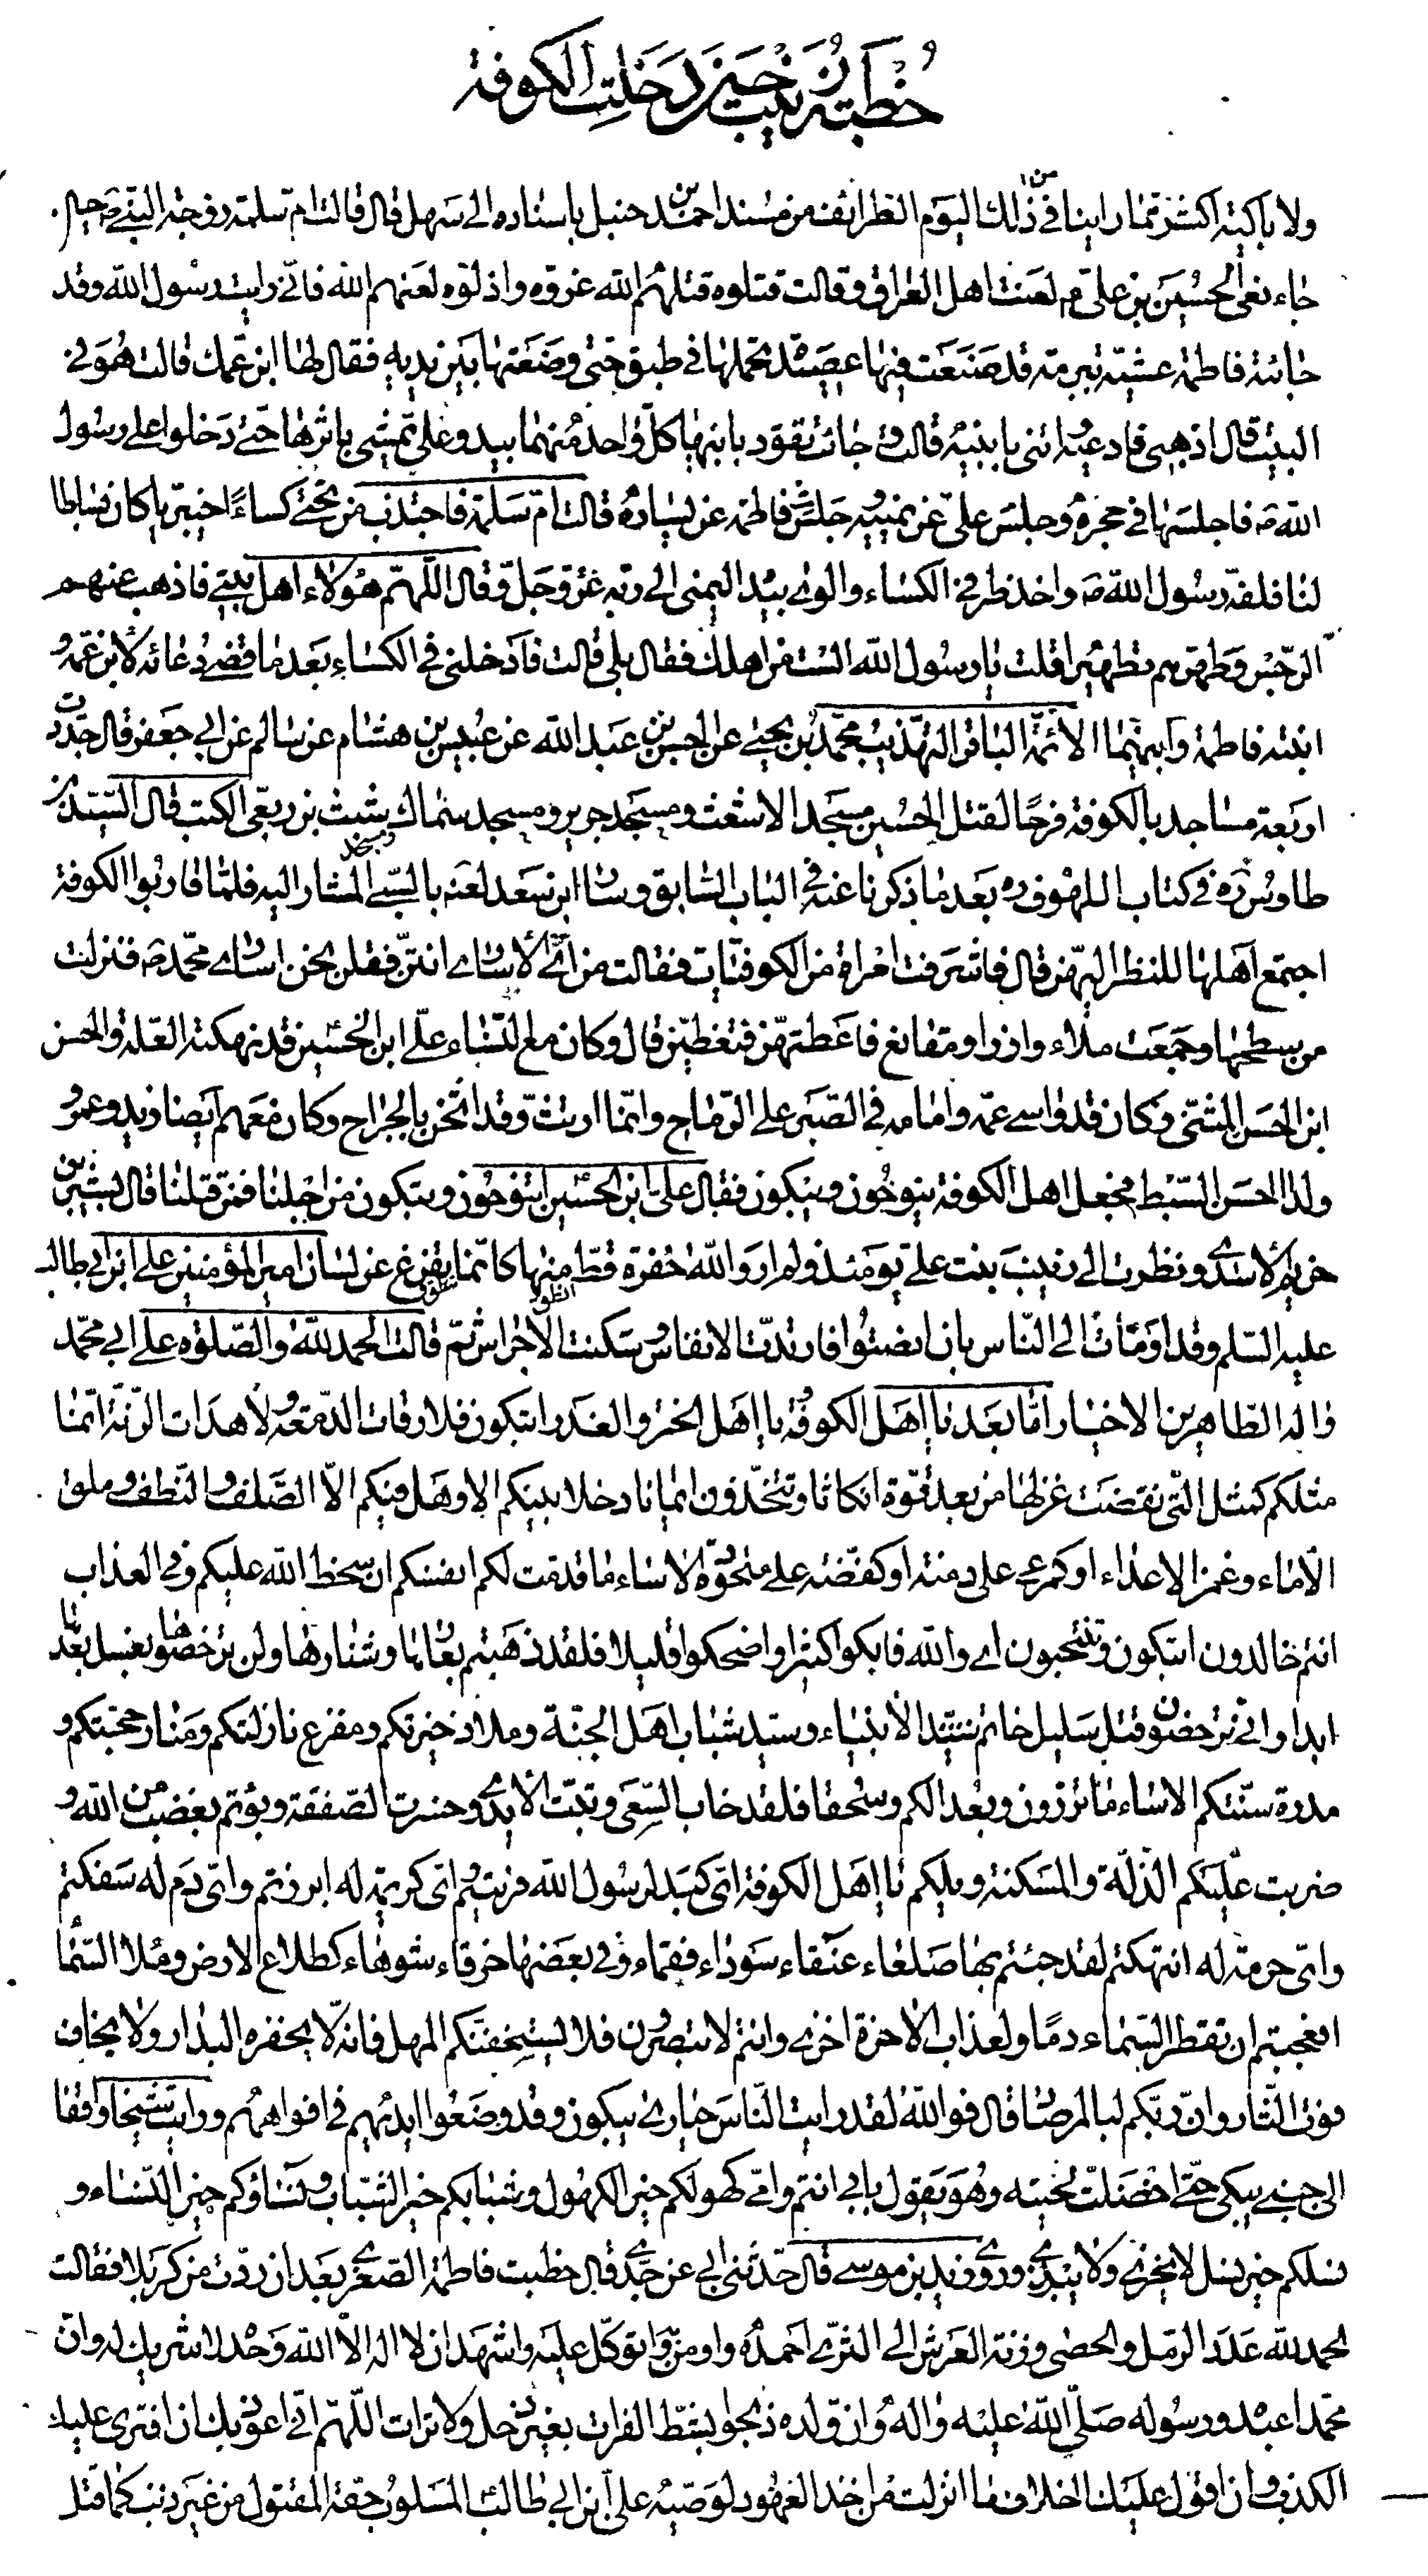 خطبة زينب حين دخلت الكوفة
ولا باكية اكثر مما راينا في ذلك اليوم الطرائف من مسند احمد بن حنبل باسناده الى سهل قال قالت ام سلمة زوجة النبي ص حين
جاء نعى الحسين بن علي ع لعنت اهل العراق و قالت قتلوه قتلهم الله غروه واذلوه لعنهم الله فاني رايت رسول الله وقد
جائته فاطمة عشية ببرمة قد صنعت فيها عصيدة تحملها في طبق حتى وضعتها بين يديه فقال لها اين ابن عمك قالت هو في
البيت قال اذهبي فادعيه وائتني بابنيه قالت و جائت تقود بابنيها كل واحد منهما بيد و علي يمشي باثرها حتى دخلوا على رسول
الله ص فاجلسهما في حجره وجلس علي عن يمينه و جلست فاطمة عن يساره قالت ام سلمة فاجتذب من تحتي كساء اخيبريا كان بساطا
لنا فلفه رسول الله ص واخذ طرفي الكساء والوى بيده اليمنى الى ربه عز و جل و قال اللهم هؤلاء اهل بيتي فاذهب عنهم
الرجس و طهرهم تطهيرا قلت يا رسول الله الست من اهلك فقال بلى قالت فادخلني في الكساء بعد ما قضى دعائه لابن عمه و
ابنته فاطمة وابنيهما الائمة الباقر التهذيب محمد بن يحيى عن الحسن بن عبد الله عن عبيس بن هشام عن سالم عن ابي جعفر قال جددت
اربعة مساجد بالكوفة فرحا لقتل الحسين مسجد الاشعث و مسجد جرير و مسجد سماك ومسجد شبث بن ربعي الكتب قال السيد بن
طاوس ره في كتاب اللهوف ره بعد ما ذكرنا عنه في الباب السابق وسار ابن سعد لعنه بالسبي المشار اليه فلما قاربوا الكوفة
اجتمع اهلها للنظر اليهن قال فاشرفت امراة من الكوفيات فقالت من اي الاسارى انتن فقلن نحن اسارى محمد ص فنزلت
من سطحها وجمعت ملاء وازرا ومقانع فاعطتهن فتغطين قال وكان مع النساء علي ابن الحسين قد نهكته العلة والحسن
ابن الحسن المثنى وكان قد واسى عمه وامامه في الصبر على الرماح وانما ارتث و قد اثخن بالجراح وكان معهم ايضا زيد وعمرو
ولدا الحسن السبط فجعل اهل الكوفة ينوحون ويبكون فقال علي ابن الحسين اتنوحون وتبكون من اجلنا فمن قتلنا قال بشير بن
خزيم الاسدى ونظرت الى زينب بنت علي يومئذ ولم ار والله خفرة قط انطق منها كانما تفرغ عن لسان امير المؤمنين علي ابن ابي طالب
عليه السلم وقد اومات الى الناس بان انصتوا فارتدت الانفاس و سكنت الاجراس ثم قالت الحمد لله والصلوة على ابي محمد
واله الطاهرين الاخيار اما بعد يا اهل الكوفة يا اهل الختر والغدر اتبكون فلا رقات الدمعة و لا هدات الرنة انما
مثلكم كمثل التي نقضت غزلها من بعد قوة انكاثا وتتخذون ايمانا دخلا بينكم الا وهل فيكم الا الصلف و النطف و ملق
الاماء وغمز الاعداء او كمرعى على دمنة او كفضة على ملحودة الا ساء ما قدمت لكم انفسكم ان سخط الله عليكم وفي العذاب
انتم خالدون اتبكون وتنتحبون اى والله فابكوا كثيرا واضحكوا قليلا فلقد ذهبتم بعارها وشنارها ولن ترحضوها بغسل بعدها
ابدا واني ترحضون قتل سليل خاتم سيد الانبياء وسيد شباب اهل الجنة وملاذ خيرتكم ومفزع نازلتكم ومنار حجتكم و
مدرة سنتكم الا ساء ما تزرون وبعدا لكم وسحقا فلقد خاب السعي وتبت الايدى وخسرت الصفقة وبؤتم بغضب من الله و
ضربت عليكم الذلة والمسكنة ويلكم يا اهل الكوفة اي كبد لرسول الله فريتم و اي كريمة له ابرزتم واي دم له سفكتم
واي حرمة له انتهكتم لقد جئتم بها صلعاء عنقاء سوداء فقماء وفي بعضها خرقاء شوهاء كطلاع الارض وملا السماء
افعجبتم ان تقطر السماء دما ولعذاب الاخرة اخزى وانتم لا تنصرون فلا يستخفنكم المهل فانه لا يحفزه البدار ولا يخاف
فوت الثار وان ربكم لبالمرصاد قال فوالله لقد رايت الناس حيارى يبكون وقد وضعوا ايديهم في افواههم ورايت شيخا واقفا
الى جنبي يبكي حتى اخضلت لحيته وهو يقول بابي انتم وامي كهولكم خير الكهول وشبابكم خير الشباب ونساؤكم خير النساء و
نسلكم خير نسل لا يخزى ولا يبزى وروى زيد بن موسى قال حدثني ابي عن جدى قال خطبت فاطمة الصغرى بعد ان ردت من كربلا فقالت
الحمد لله عدد الرمل والحصى وزنة العرش الى الثرى احمده واومن به واتوكل عليه واشهد ان لا اله الا الله وحده لا شريك له وان
محمدا عبده ورسوله صلى الله عليه واله وان ولده ذبحوا بشط الفرات بغير ذحل ولا ترات اللهم اني اعوذ بك ان افترى عليك
الكذب وان اقول عليك خلاف ما انزلت من اخذ العهود لوصيه علي ابن ابي طالب المسلوب حقه المقتول من غير ذنب كما قتل